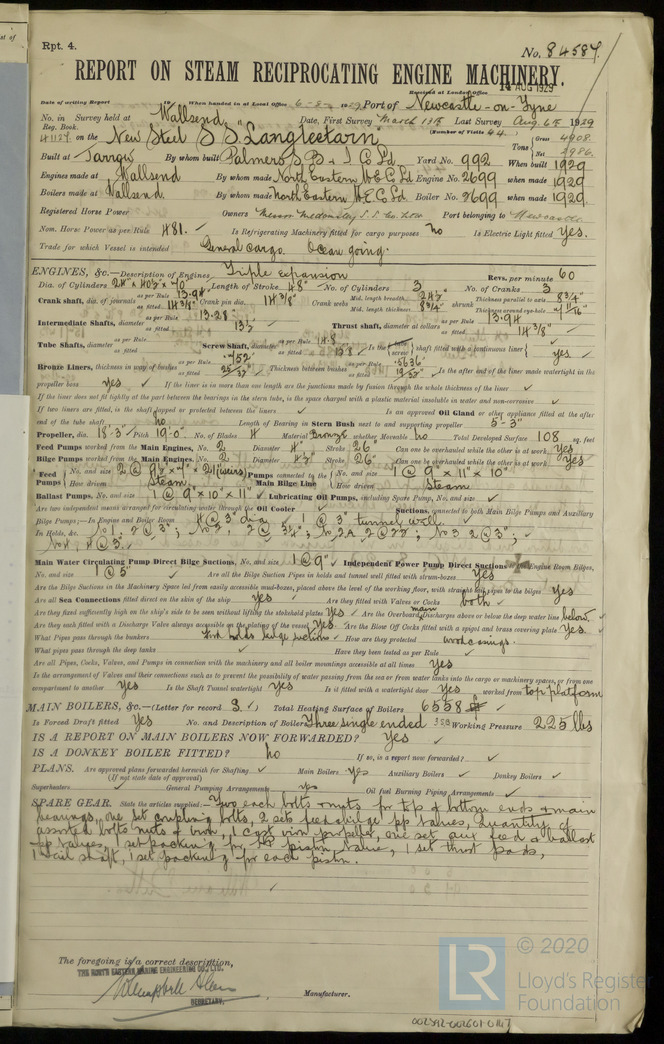 Rpt. 4.
No. 84587.
REPORT ON STEAM RECIPROCATING ENGINE MACHINERY.
Received at London Office 14 AUG 1929
Date of writing Report When handed in at Local Office 6-8-1929 Port of Newcastle-on-Tyne
No. in Survey held at Wallsend Date, First Survey March 13th Last Survey Aug. 6th 1929
Reg. Book. (Number of Visits 44.)
on the New Steel S.S. Langleetarn Tons Gross 4908. Net 2986.
Built at Jarrow By whom built Palmers S.B. & I. Co Ld Yard No. 992 When built 1929
Engines made at Wallsend By whom made North Eastern M.E. Co Ld Engine No. 2699 when made 1929
Boilers made at Wallsend. By whom made North Eastern M.E. Co Ld. Boiler No. 2699 when made 1929.
Registered Horse Power Owners Port belonging to Newcastle
Nom. Horse Power as per Rule 481. Is Refrigerating Machinery fitted for cargo purposes no Is Electric Light fitted Yes.
Trade for which Vessel is intended General cargo. Ocean going.
ENGINES, &c.—Description of Engines Triple expansion Revs. per minute 60
Dia. of Cylinders Length of Stroke 48" No. of Cylinders 3 No. of Cranks 3
Crank shaft, dia. of journals as per Rule 13.94 as fitted 14 3/8" Crank pin dia. 14 3/8" Crank webs Mid. length breadth Mid. length thickness 8 3/4" shrunk Thickness parallel to axis 8 3/4" Thickness around eye-hole
Intermediate Shafts, diameter as per Rule 13.28 as fitted 13 1/2 Thrust shaft, diameter at collars as per Rule 13.94 as fitted 14 3/8"
Tube Shafts, diameter as per Rule as fitted Screw Shaft, diameter as per Rule 14.8 as fitted Is the shaft fitted with a continuous liner yes
Bronze Liners, thickness in way of bushes as per Rule .752 as fitted Thickness between bushes as per Rule .5636 as fitted Is the after end of the liner made watertight in the
propeller boss yes If the liner is in more than one length are the junctions made by fusion through the whole thickness of the liner
If the liner does not fit tightly at the part between the bearings in the stern tube, is the space charged with a plastic material insoluble in water and non-corrosive
If two liners are fitted, is the shaft lapped or protected between the liners Is an approved Oil Gland or other appliance fitted at the after
end of the tube shaft no Length of Bearing in Stern Bush next to and supporting propeller 5'-3"
Propeller, dia. 18'-3" Pitch 19'-0" No. of Blades 4 Material Bronze whether Moveable no Total Developed Surface 108 sq. feet
Feed Pumps worked from the Main Engines, No. 2 Diameter 4" Stroke 26" Can one be overhauled while the other is at work yes
Bilge Pumps worked from the Main Engines, No. 2 Diameter 4 1/2" Stroke 26" Can one be overhauled while the other is at work yes
Feed Pumps No. and size How driven Steam Pumps connected to the Main Bilge Line No. and size 1 @ 9" x 11" x 10" How driven Steam
Ballast Pumps, No. and size 1 @ 9" x 10" x 11" Lubricating Oil Pumps, including Spare Pump, No. and size
Are two independent means arranged for circulating water through the Oil Cooler Suctions, connected to both Main Bilge Pumps and Auxiliary
Bilge Pumps;—In Engine and Boiler Room 4 @ 3" dia 1 @ 3" tunnel well.
In Holds, &c. No 1, 2 @ 3"; No 3 2 @ 3";
No 4, 4 @ 3".
Main Water Circulating Pump Direct Bilge Suctions, No. and size 1 @ 9" Independent Power Pump Direct Suctions Engine Room Bilges,
No. and size 1 @ 5" Are all the Bilge Suction Pipes in holds and tunnel well fitted with strum-boxes yes
Are the Bilge Suctions in the Machinery Space led from easily accessible mud-boxes, placed above the level of the working floor, with straight tail pipes to the bilges yes
Are all Sea Connections fitted direct on the skin of the ship yes Are they fitted with Valves or Cocks both
Are they fixed sufficiently high on the ship's side to be seen without lifting the stokehold plates Yes Are the Overboard Discharges above or below the deep water line below.
Are they each fitted with a Discharge Valve always accessible on the plating of the vessel yes Are the Blow Off Cocks fitted with a spigot and brass covering plate Yes.
What Pipes pass through the bunkers Fwd holds bilge suctions How are they protected wood casings.
What pipes pass through the deep tanks Have they been tested as per Rule
Are all Pipes, Cocks, Valves, and Pumps in connection with the machinery and all boiler mountings accessible at all times yes
Is the arrangement of Valves and their connections such as to prevent the possibility of water passing from the sea or from water tanks into the cargo or machinery spaces, or from one
compartment to another yes Is the Shaft Tunnel watertight yes Is it fitted with a watertight door Yes worked from top platform
MAIN BOILERS, &c.—(Letter for record S.) Total Heating Surface of Boilers 6558
Is Forced Draft fitted Yes No. and Description of Boilers Three single ended Working Pressure 225 lbs
IS A REPORT ON MAIN BOILERS NOW FORWARDED? Yes
IS A DONKEY BOILER FITTED? no If so, is a report now forwarded?
PLANS. Are approved plans forwarded herewith for Shafting Main Boilers yes Auxiliary Boilers Donkey Boilers
(If not state date of approval)
Superheaters General Pumping Arrangements yes Oil fuel Burning Piping Arrangements
SPARE GEAR. State the articles supplied:— Two each bolts & nuts for top & bottom ends & main
bearings, one set coupling bolts, 2 sets feed & bilge pp valves, quantity of
assorted bolts nuts & iron, 1 cast iron propeller, one set aux feed & ballast
pp valves, 1 set packing for HP piston valve, 1 set thrust pads,
1 tail shaft, 1 set packing for each piston.
The foregoing is a correct description,
THE NORTH EASTERN MARINE ENGINEERING CO., LTD.
SECRETARY. Manufacturer.
LR
© 2020
Lloyd's Register
Foundation
002592-002601-0147